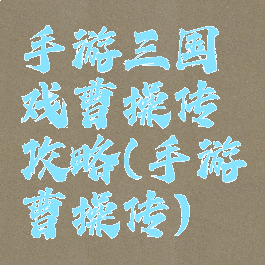 手游三国
戏曹操传
攻略(手游
曹操传)